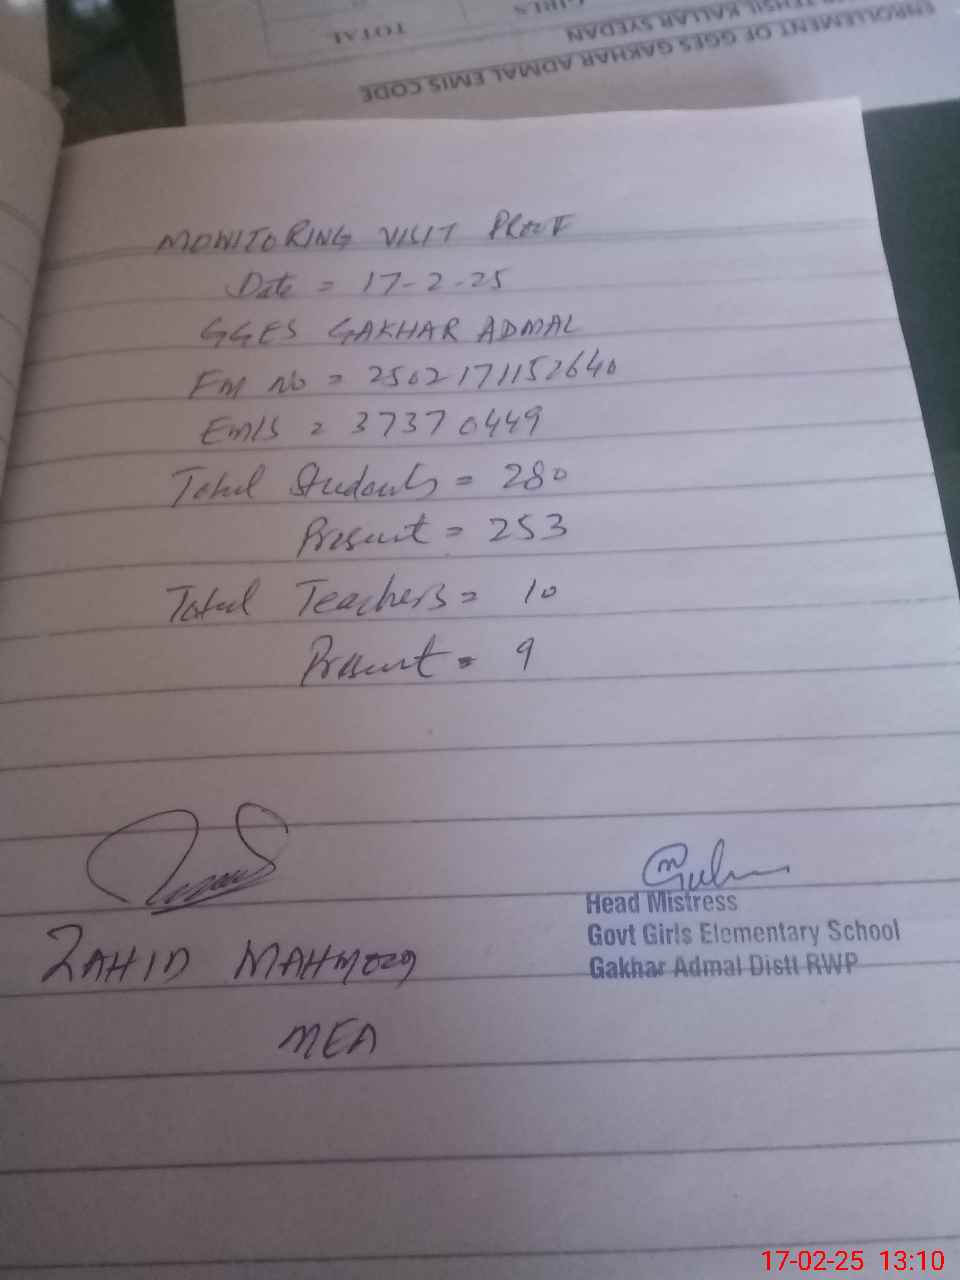 ENROLLEMENT OF GGES GAKHAR ADMAL EMIS CODE
TEHSIL KALLAR SYEDAN
GIRLS
TOTAL
MONITORING VISIT PROOF
Date = 17-2-25
GGES GAKHAR ADMAL
FM no = 2502171152640
EMIS = 37370449
Total Students = 280
Present = 253
Total Teachers = 10
Present = 9
ZAHID MAHMOOD
MEA
Head Mistress
Govt Girls Elementary School
Gakhar Admal Distt RWP
17-02-25 13:10